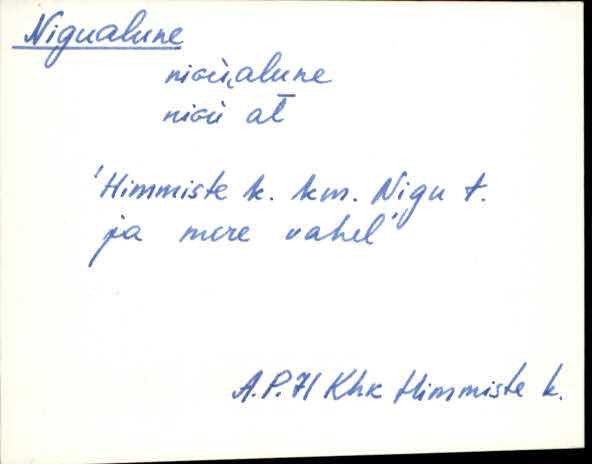 Nigualune
niɢù̬alune
niɢù at̄
'Himmiste k. km. Nigu t.
ja mere vahel'
A.P.71 Khk Himmiste k.